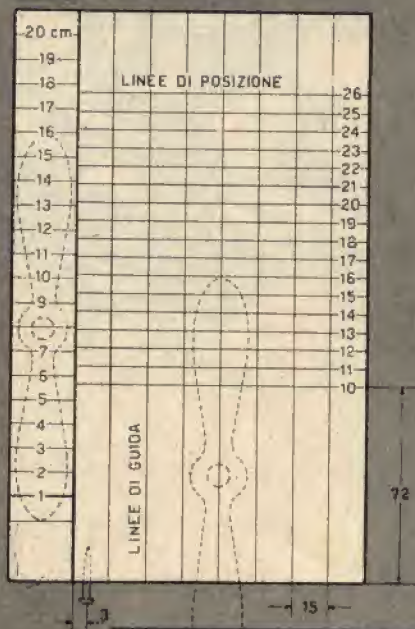 20 cm
19
18
17
16
15
14
13
12
11
10
9
8
7
6
5
4
3
2
1
LINEE DI POSIZIONE
26
25
24
23
22
21
20
19
18
17
16
15
14
13
12
11
10
LINEE DI GUIDA
72
3
15